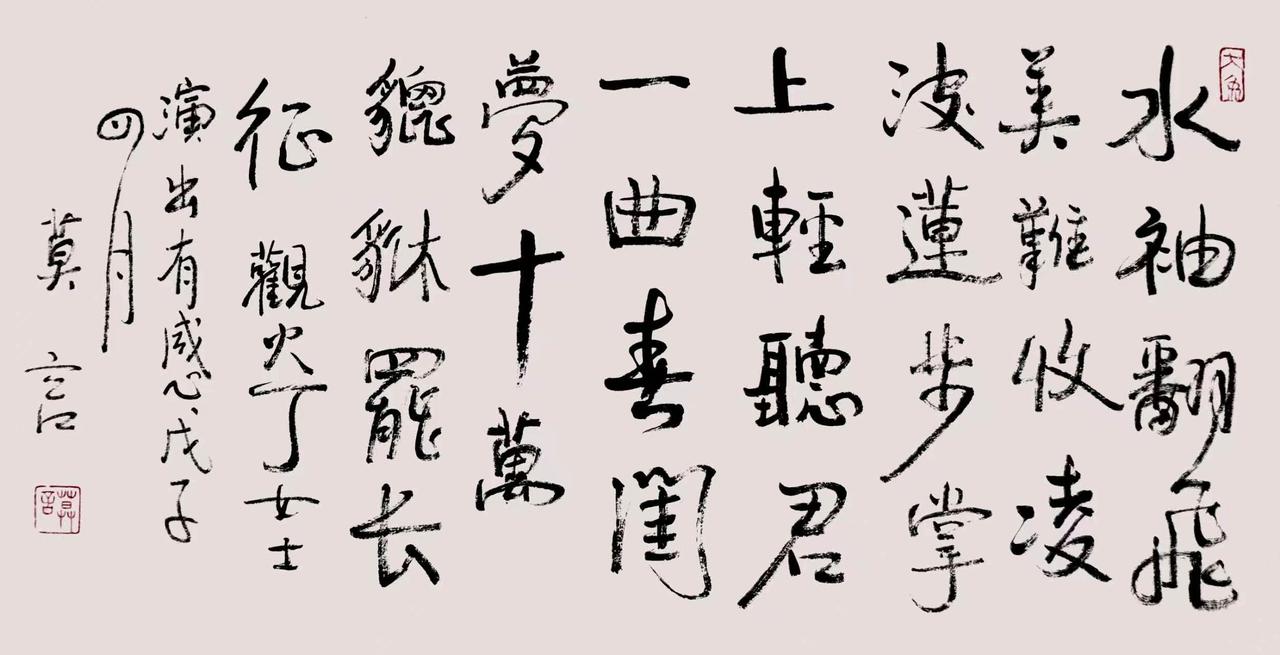 水袖翻飛
美難收凌
波蓮步掌
上輕聽君
一曲春閨
夢十萬
貔貅罷长
征 觀火丁女士
演出有感戊子
四月
莫言
莫言